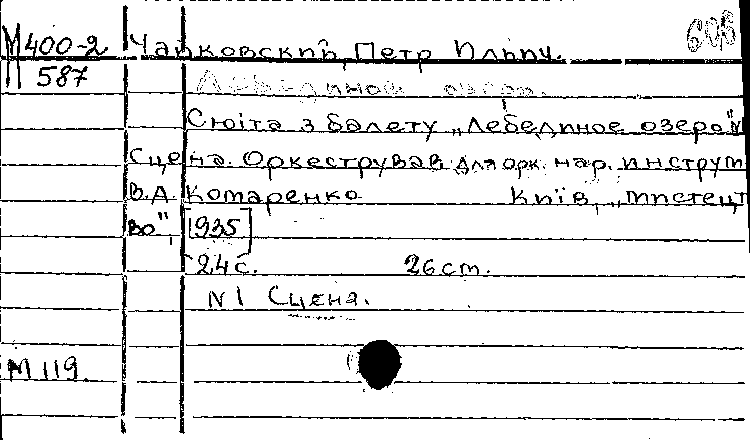 М400-2 Чайковский, Петр Ильич. 608
587 Лебединое озеро.
Сюіта з балету „Лебединое озеро"
Сцена. Оркестрував для орк. нар. инструм
В.А. Комаренко Київ, „Мистецт
во", [1935]
24 с. 26 cm.
N 1 Сцена.
М 119.